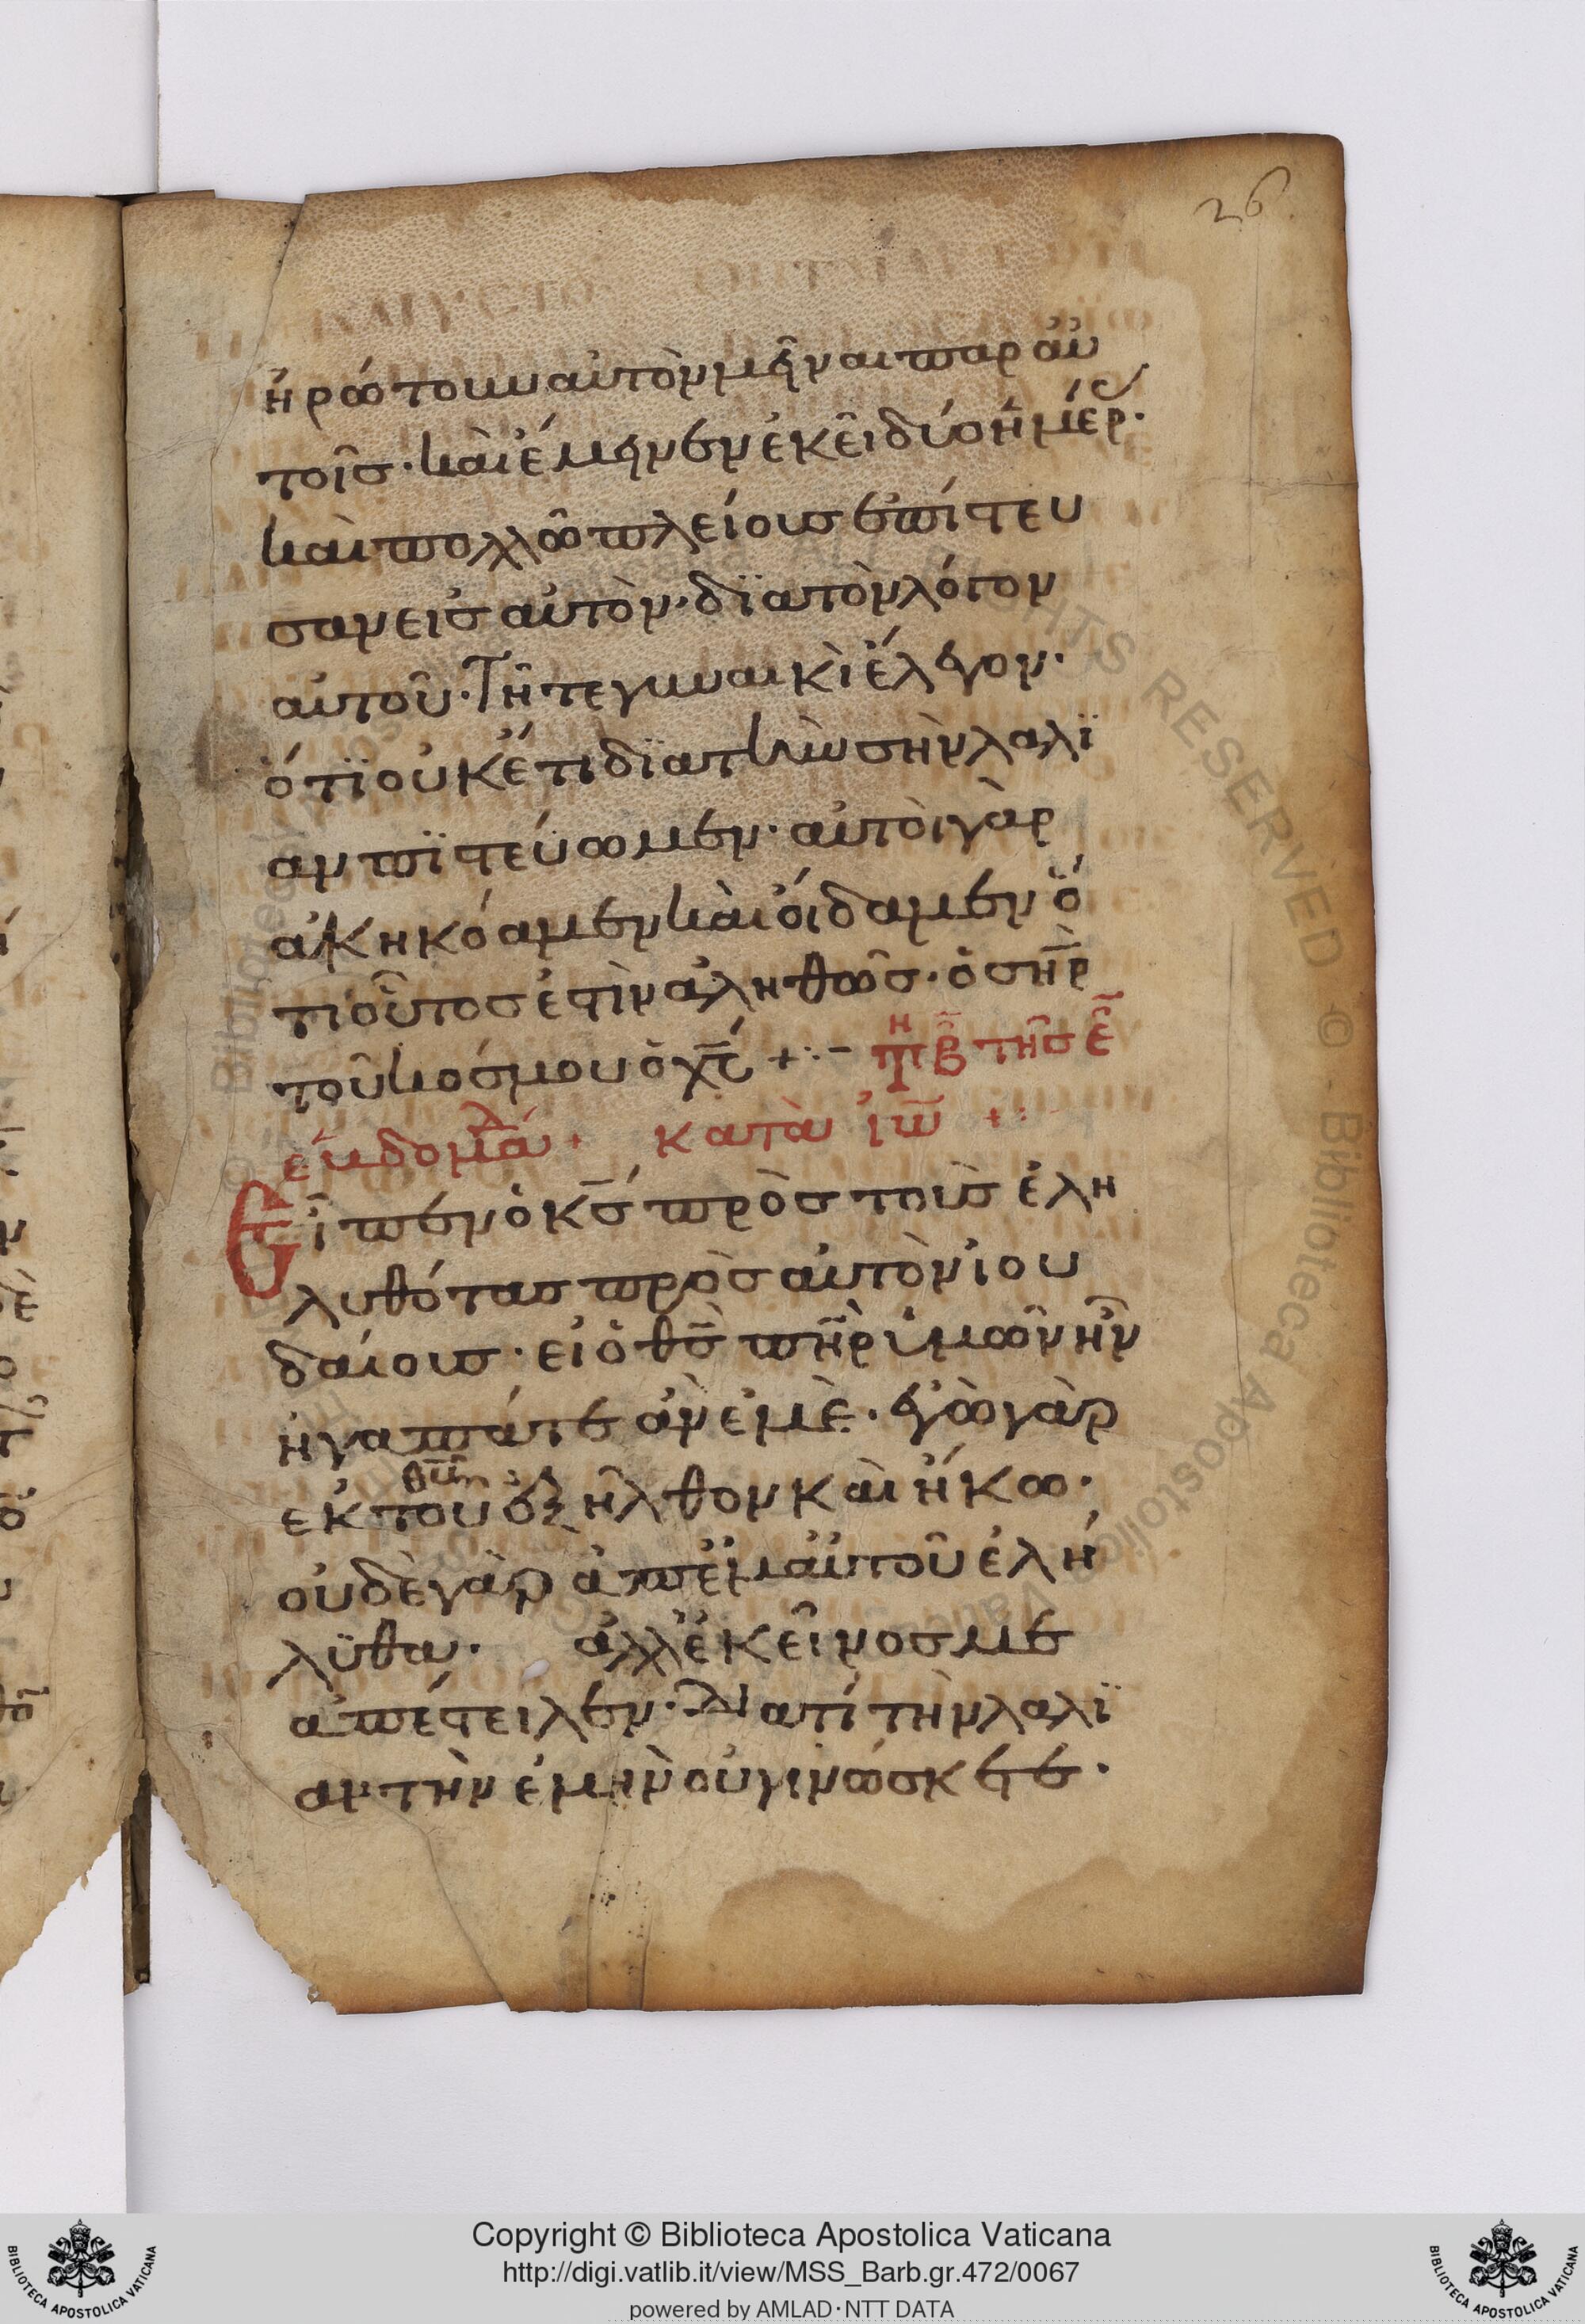 26
ἠρώτουν αὐτὸν μῆναι παρ αὐ
τοῖς· καὶ ἔμηνεν ἐκεῖ δύο ἡμέρ·
καὶ πολλῶ πλείους ἐπίστευ
σαν εἰς αὐτὸν· δϊα τὸν λόγον
αὐτοῦ· Τῆ τε γυναικὶ ἔλεγον·
ὅτϊ οὐκ ἔτι δϊα τὴν σὴν λαλϊ
αν πϊστεύωμεν· αὐτοὶ γὰρ
ἀκηκόαμεν καὶ οἴδαμεν ὅ
τι οὗτος ἐστὶν ἀληθῶς· ὁ σηρ
τοῦ κόσμου ὁ χς +:– τη β τῆς ε
ἑυδομά + κατὰ ἰω +:
Εἶπεν ὁ κς πρὸς τοὺς ἐλη
λυθότας πρὸς αὐτὸν ἰου
δαίους· εἰ ὁ θς πηρ ὑμῶν ἦν
ἠγαπάτε ἂν ἐμὲ· ἐγὼ γὰρ
ἐκ τοῦ θυ ἐξῆλθον καὶ ἥκω·
οὐδὲ γὰρ ἀπ ἐμαὐτοῦ ἐλή
λϋθα· ἀλλ ἐκεῖνος με
ἀπέστειλεν· Διατί τὴν λαλϊ
αν τὴν ἐμὴν οὐ γινώσκετε·
Copyright © Biblioteca Apostolica Vaticana
http://digi.vatlib.it/view/MSS_Barb.gr.472/0067
powered by AMLAD·NTT DATA
BIBLIOTECA APOSTOLICA VATICANA
BIBLIOTECA APOSTOLICA VATICANA